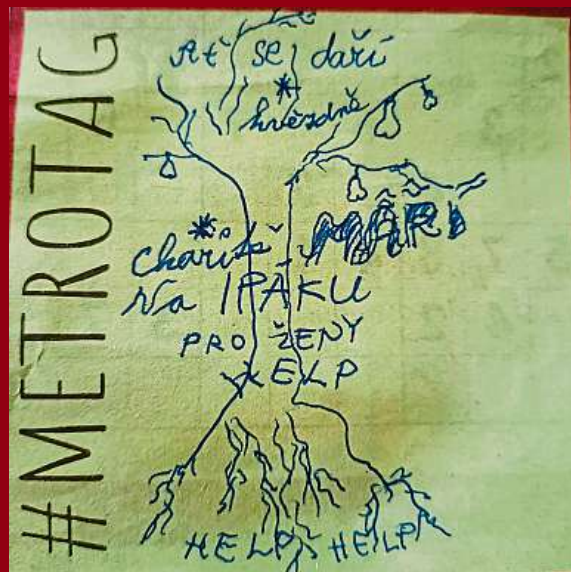 #METROTAG
Ať se daří
hvězdně
Na IPÁKU
PRO ŽENY
HELP
HELP HELP